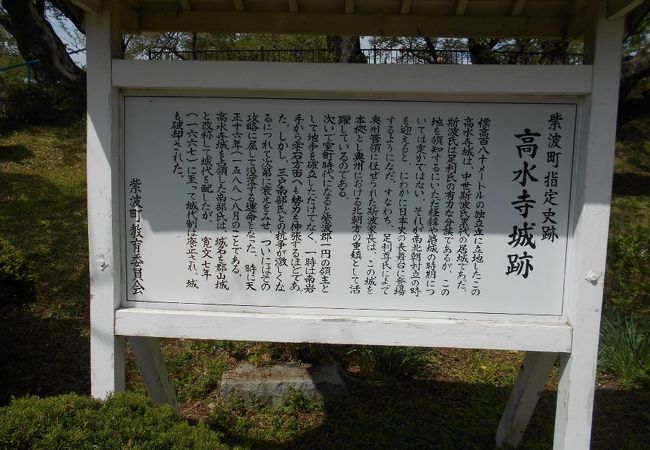 紫波町指定史跡
高水寺城跡
標高百八十メートルの独立丘に立地したこの
高水寺城は、中世斯波氏累代の居城であった。
斯波氏は足利氏の有力な分族であるが、この
地を領知するにいたった経緯や居城の時期につ
いては定かではない。それが南北朝対立の時
を迎えると、にわかに日本史の表舞台に登場
するようになる。すなわち、足利尊氏によって
奥州管領に任ぜられた斯波家長は、この城を
本拠とし奥州における北朝方の重鎮として活
躍しているのである。
次いで室町時代になると紫波郡一円の領主と
して地歩を確立しただけでなく、一時は南岩
手から雫石方面へも勢力を伸張するほどであっ
た。しかし、三戸南部氏との抗争が激しくな
るにつれて次第に衰えをみせ、ついにはその
攻略に屈して没落する運命となった。時に天
正十六年（一五八八）八月のことである。
高水寺城を領した南部氏は、城名を郡山城
と改称して城代を配したが、寛文七年
（一六六七）に至って城代制は廃止され、城
も破却された。
紫波町教育委員会